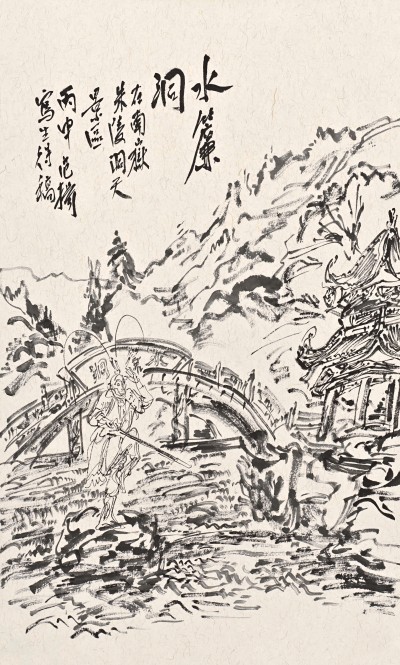 水簾
洞
在南嶽
朱陵洞天
景區
丙申范揚
寫生稿